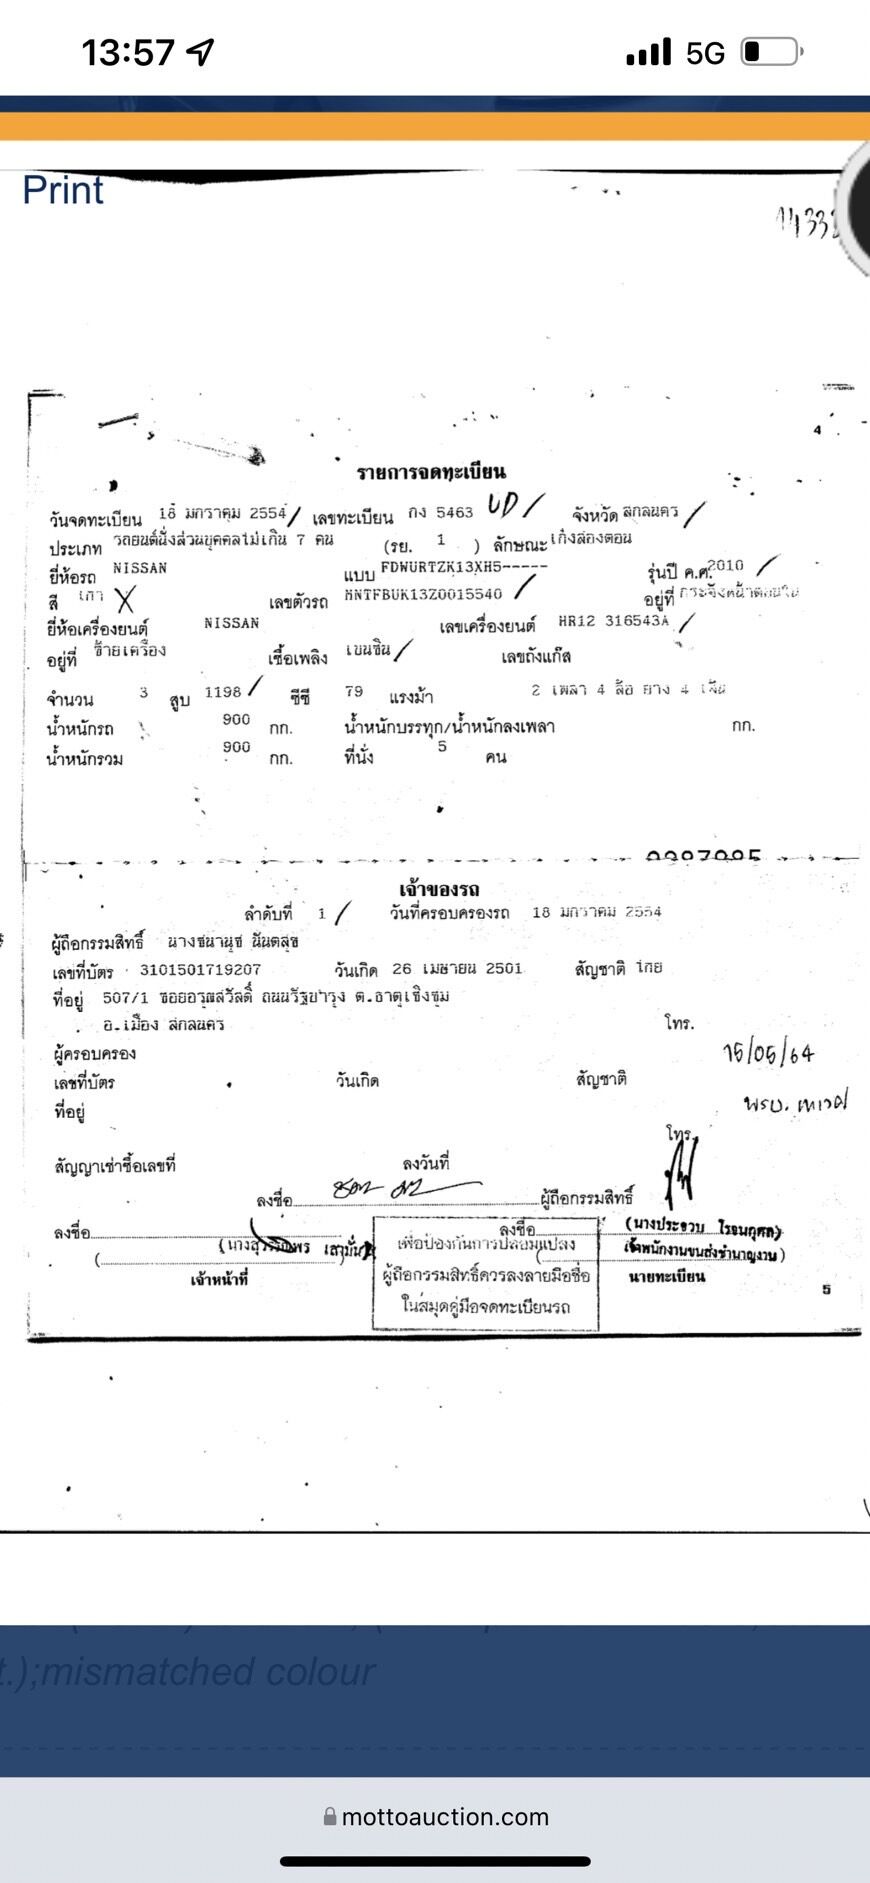 13:57 5G
Print
4
รายการจดทะเบียน
วันจดทะเบียน 18 มกราคม 2554 เลขทะเบียน กง 5463 UD/ จังหวัด สกลนคร
ประเภท รถยนต์นั่งส่วนบุคคลไม่เกิน 7 คน (รย. 1 ) ลักษณะ เก๋งสองตอน
ยี่ห้อรถ NISSAN แบบ FDWURTZK13XH5----- รุ่นปี ค.ศ. 2010
สี เทา X เลขตัวรถ MNTFBUK13Z0015540 อยู่ที่
ยี่ห้อเครื่องยนต์ NISSAN เลขเครื่องยนต์ HR12 316543A
อยู่ที่ ซ้ายเครื่อง เชื้อเพลิง เบนซิน เลขถังแก๊ส
จำนวน 3 สูบ 1198 ซีซี 79 แรงม้า 2 เพลา 4 ล้อ ยาง 4 เส้น
น้ำหนักรถ 900 กก. น้ำหนักบรรทุก/น้ำหนักลงเพลา กก.
น้ำหนักรวม 900 กก. ที่นั่ง 5 คน
เจ้าของรถ
ลำดับที่ 1 วันที่ครอบครองรถ 18 มกราคม 2554
ผู้ถือกรรมสิทธิ์ นางชนานุช นันตสุข
เลขที่บัตร 3101501719207 วันเกิด 26 เมษายน 2501 สัญชาติ ไทย
ที่อยู่ 507/1 ซอยอรุณสวัสดิ์ ถนนรัฐบำรุง ต.ธาตุเชิงชุม
อ.เมือง สกลนคร โทร.
ผู้ครอบครอง 15/05/64
เลขที่บัตร วันเกิด สัญชาติ
ที่อยู่ พรบ.
โทร.
สัญญาเช่าซื้อเลขที่ ลงวันที่
ลงชื่อ ผู้ถือกรรมสิทธิ์
ลงชื่อ ลงชื่อ (นางประชวบ โรจนกุศล)
เพื่อป้องกันการปลอมแปลง เจ้าพนักงานขนส่งชำนาญงาน)
เจ้าหน้าที่ ผู้ถือกรรมสิทธิ์ควรลงลายมือชื่อ นายทะเบียน
ในสมุดคู่มือจดทะเบียนรถ 5
t.);mismatched colour
mottoauction.com